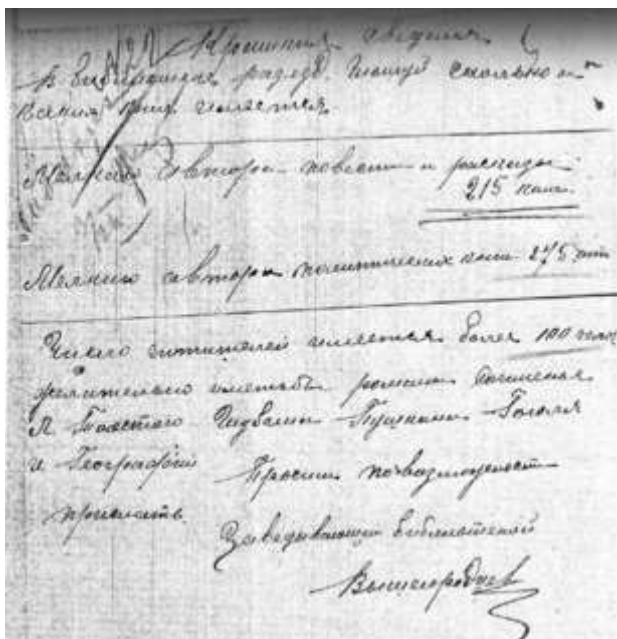 Краткия сведения
В библиотечн сколько и
каких книг имеется
Мелкие автора повести и рассказы
215 книг.
Мелкие автора политических книг 275 шт
Число читателей имеется более 100 чело
желательно иметьбы романы сочинения
Л Толстого Пушкина Гоголя
и Географий Просим повозможност
прислать
Заведывающий библиотекой
Вышегородцев